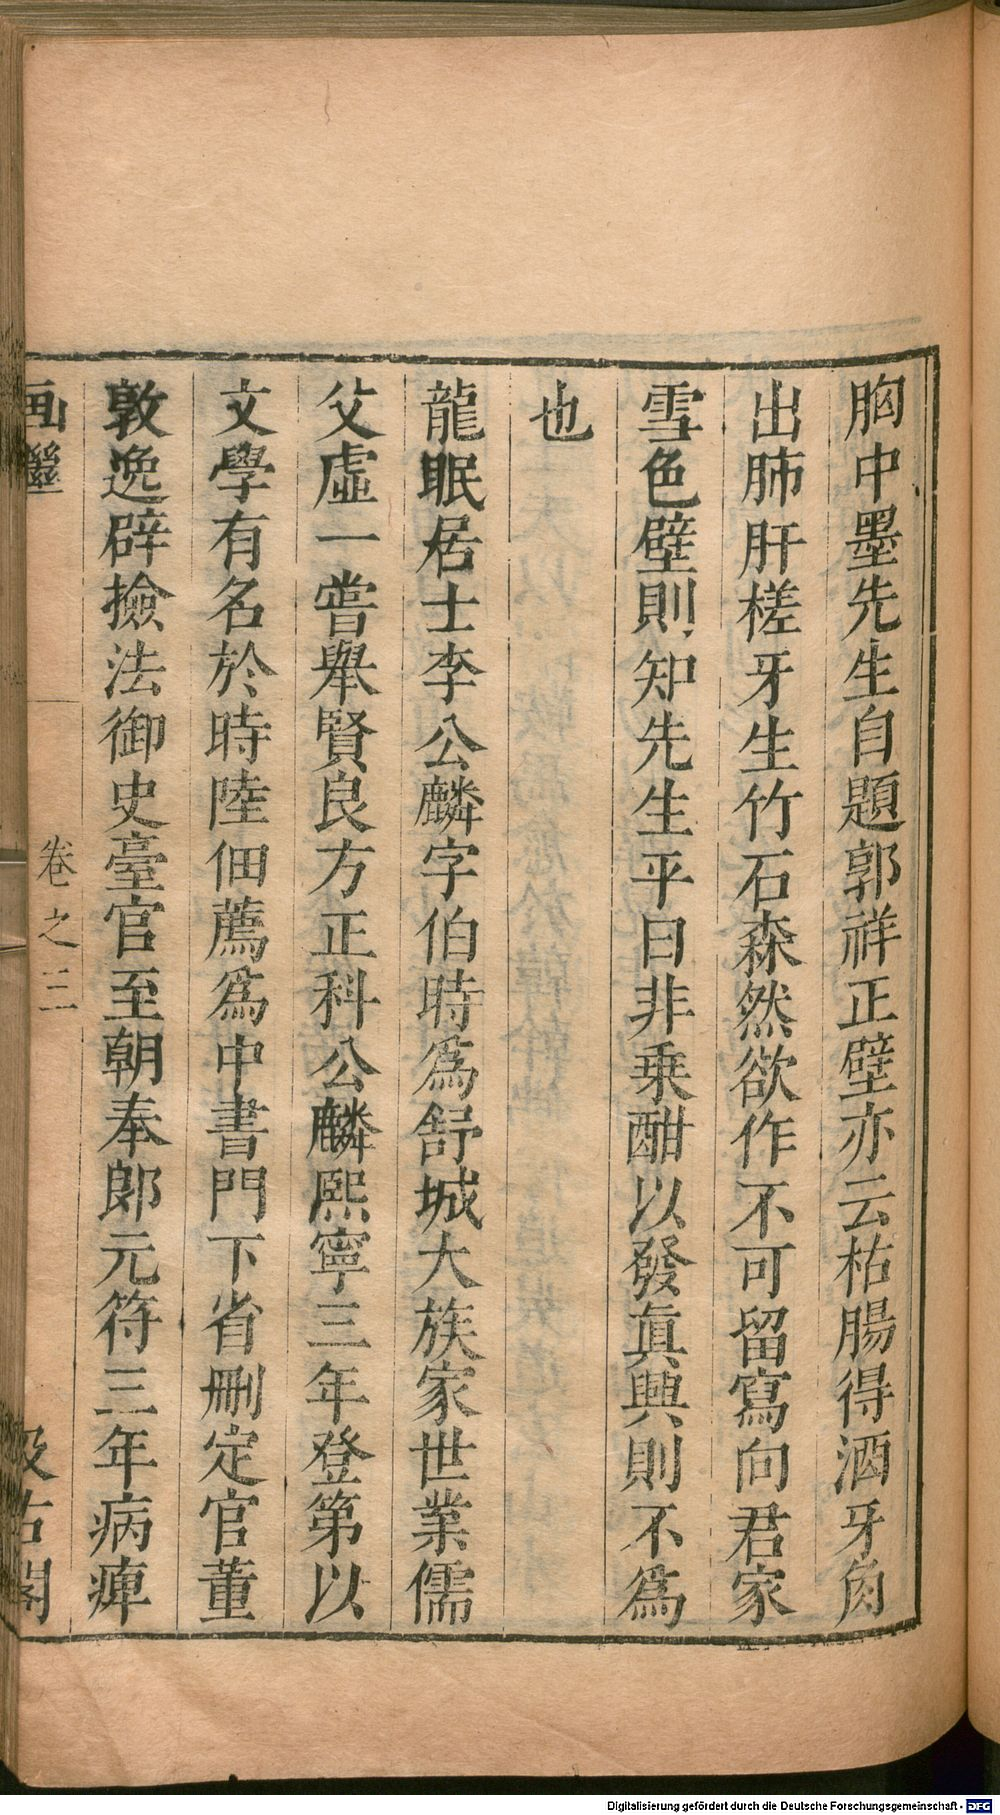 胸中墨先生自題郭祥正壁亦云枯腸得酒牙角
出肺肝槎牙生竹石森然欲作不可留寫向君家
雪色壁則知先生平日非乗酣以發眞興則不為
也
龍眠居士李公麟字伯時為舒城大族家世業儒
父虛一嘗舉賢良方正科公麟熙寧三年登第以
文學有名於時陸佃薦為中書門下省刪定官董
敦逸辟撿法御史臺官至朝奉郎元符三年病痺
画繼
卷之三
汲古閣
Digitalisierung gefördert durch die Deutsche Forschungsgemeinschaft - DFG